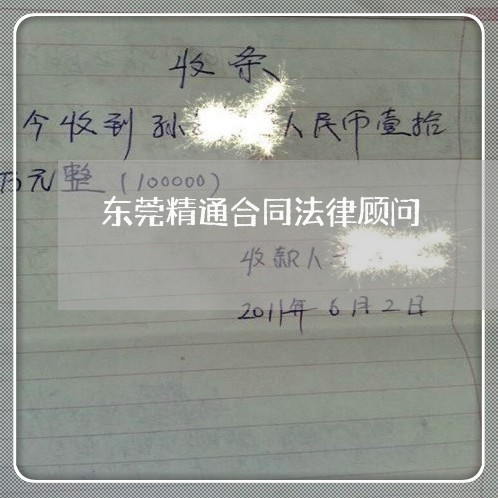 收条
今收到孙 人民币壹拾
万元整（100000）
东莞精通合同法律顾问
收款人
2011年6月2日